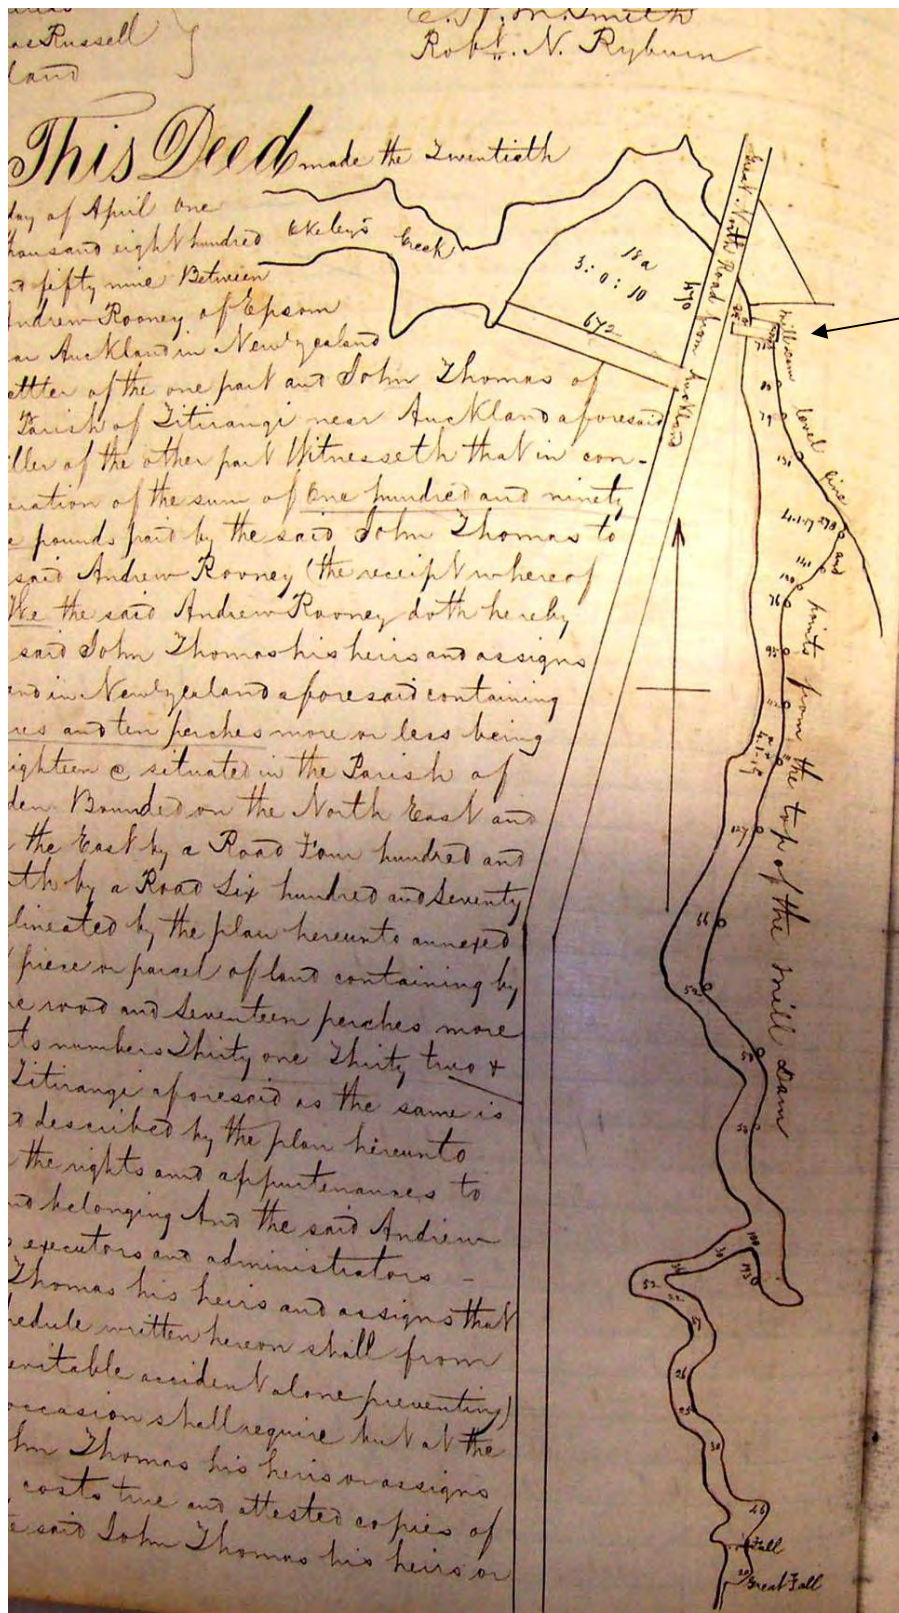 as Russell
land
E. H. M. Smith
Robt. N. Ryburn
This Deed made the Twentieth
day of April One
thousand eight hundred
fifty nine Between
Andrew Rooney of Epsom
Auckland in New Zealand
settler of the one part and John Thomas of
Parish of Titirangi near Auckland aforesaid
of the other part Witnesseth that in con-
of the sum of One hundred and ninety
pounds paid by the said John Thomas to
said Andrew Rooney (the receipt whereof
the said Andrew Rooney doth hereby
said John Thomas his heirs and assigns
in New Zealand aforesaid containing
and ten perches more or less being
ighteen situated in the Parish of
den Bounded on the North East and
the East by a Road Four hundred and
th by a Road Six hundred and Seventy
lineated by the plan hereunto annexed
piece or parcel of land containing by
rood and Seventeen perches more
ts numbers Thirty one Thirty two +
Titirangi aforesaid as the same is
described by the plan hereunto
the rights and appurtenances to
belonging And the said Andrew
executors and administrators -
Thomas his heirs and assigns that
hedule written hereon shall from
evitable accident alone preventing)
occasion shall require but at the
Thomas his heirs or assigns
costs true and attested copies of
said John Thomas his heirs or
Okeley's Creek
18a
3 : 0 : 10
470
672
Great North Road from Auckland
level line and points from the top of the mill dam
79
131
95
127
66
54
52
26
30
46
Fall
Great Fall